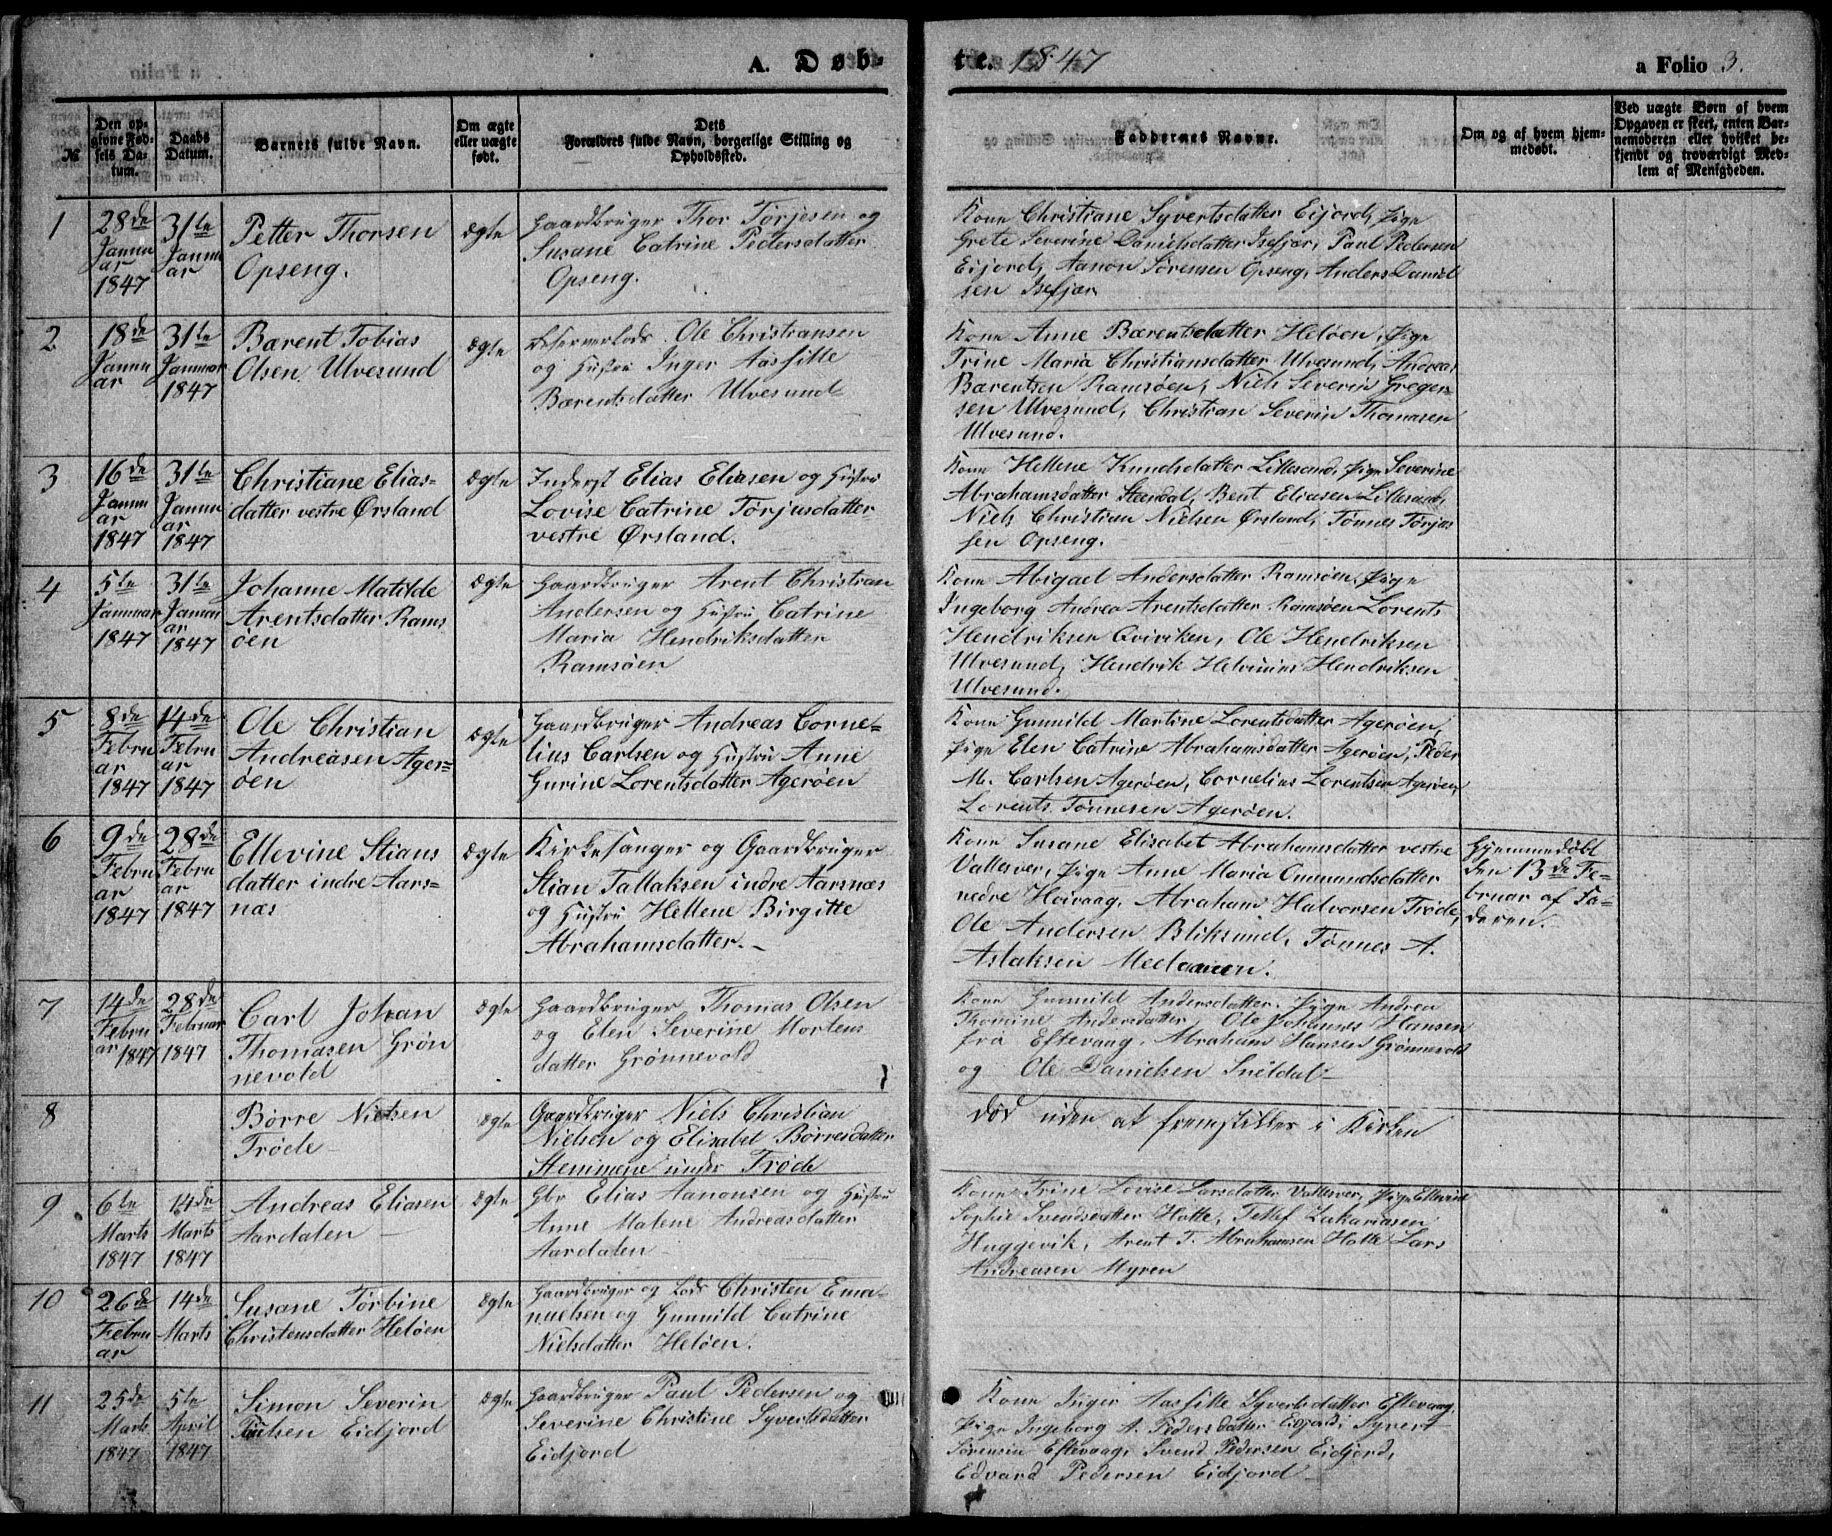 A. Døb-
te. 1847
a Folio 3.
№
Den opgivne Fødsels Datum.
Daabs Datum.
Barnets fulde Navn.
Om ægte eller uægte født.
Dets
Forældres fulde Navn, borgerlige Stilling og
Opholdssted.
Faddernes Navne.
Om og af hvem hjemmedøbt.
Ved uægte Børn af hvem
Opgaven er skeet, enten Barnemoderen eller hvilket bekjendt og troværdigt Medlem af Menigheden.
1
28de
Januar
1847
31te
Januar
Petter Thorsen
Opseng.
Ægte
Gaardbruger Thor Tørjesen og
Susane Catrine Pedersdatter
Opseng.
Kone Christiane Syvertsdatter Eijord, Pige
Grete Severine Danielsdatter Isefjær, Paul Pedersen
Eijord, Aanon Sørensen Opseng, Anders Daniel
sen Isefjær
2
18de
Januar
31te
Januar
1847
Barent Tobias
Olsen Ulvesund
Ægte
Ole Christiansen
og Hustru Inger Aasfille
Bærentsdatter Ulvesund
Kone Anne Bærentsdatter Heløen, Pige
Trine Maria Christiansdatter Ulvesund, Andreas
Barentsen Ramsøen, Niels Severin Greger-
sen Ulvesund, Christian Severin Thomasen
Ulvesund.
3
16de
Januar
1847
31te
Januar
1847
Christiane Elias-
datter vestre Ørsland
Ægte
Inderst Elias Eliasen og Hustru
Lovise Catrine Tørjusdatter
vestre Ørsland.
Kone Hellene Knudsdatter Lillesand, Pige Severine
Abrahamsdatter Steendal, Bent Eliasen Lillesand,
Niels Christian Nielsen Ørsland, Tønnes Tørjes
sen Opseng.
4
5te
Januar
1847
31te
Januar
1847
Johanne Matilde
Arentsdatter Rams
øen
Ægte
Gaardbruger Arent Christian
Andersen og Hustru Catrine
Maria Hendriksdatter
Ramsøen
Kone Abigael Andersdatter Ramsøen, Pige
Ingeborg Andrea Arentsdatter Ramsøen Lorents
Hendriksen Qviviken, Ole Hendriksen
Ulvesund, Hendrik Helvinius Hendriksen
Ulvesund.
5
8de
Februar
1847
14de
Februar
1847
Ole Christian
Andreasen Ager=
øen
Ægte
Gaardbruger Andreas Corne-
lius Carlsen og Hustru Anne
Gurine Lorentsdatter Agerøen
Kone Gunnild Martine Lorentsdatter Agerøen,
Pige Elen Catrine Abrahamsdatter Agerøen, Peder
M. Carlsen Agerøen, Cornelius Lorentsen Agerøen,
Lorents Tønnesen Agerøen.
6
9de
Februar
1847
28de
Februar
1847
Ellevine Stians
datter indre Aars-
næs
Ægte
Kirkesanger og Gaardbruger
Stian Tallaksen indre Aarsnæs
og Hustru Hellene Birgitte
Abrahamsdatter.
Kone Susane Elisabet Abrahamsdatter vestre
Vallesver, Pige Anne Maria Omundsdatter
nedre Høivaag, Abraham Halvorsen Trøde,
Ole Andersen Bliksund, Tønnes A.
Aslaksen
Hjemmedøbt
den 13de Fe-
bruar af Fa-
deren.
7
14de
Februar
1847
28de
Februar
1847
Carl Johan
Thomasen Grøn
nevold
Ægte
Gaardbruger Thomas Olsen
og Elen Severine Mortens
datter Grønnevold
Kone Gunnild Andersdatter, Pige Andrea
Thomine Andersdatter, Ole Johannes Hansen
fra Eftevaag, Abraham Hansen Grønnevold
og Ole Danielsen Snildal
8
Børre Nielsen
Trøde
Ægte
Gaardbruger Niels Christian
Nielsen og Elisabet Børresdatter
Stemmene under Trøde
Død uden at fremstilles i Kirken
9
6te
Marts
1847
14de
Marts
1847
Andreas Eliasen
Aardalen
Ægte
Gbr Elias Aanonsen og Hustru
Anne Malene Andreasdatter
Aardalen
Kone Trine Lovise Larsdatter Vallesver, Pige Ellevine
Sophie Svendsdatter Holte, Tellef Zakariasen
Huggevik, Arent T. Abrahamsen Holte Lars
Andreasen Myren
10
26de
Februar
14de
Marts
Susane Torbine
Christensdatter Heløen
Ægte
Gaardbruger og Lods Christen Ema-
nuelsen og Gunnild Catrine
Nielsdatter Heløen.
11
25de
Marts
1847
5te
April
1847
Simon Severin
Eidjord
Ægte
Gaardbruger Paul Pedersen og
Severine Christine Syvertsdatter
Eidjord
Kone Inger Aasfille Syvertsdatter Eftevaag,
Pige Ingeborg A. Pedersdatter Eidjord, Syvert
Sørensen Eftevaag, Svend Pedersen Eidjord,
Edvard Pedersen Eidjord